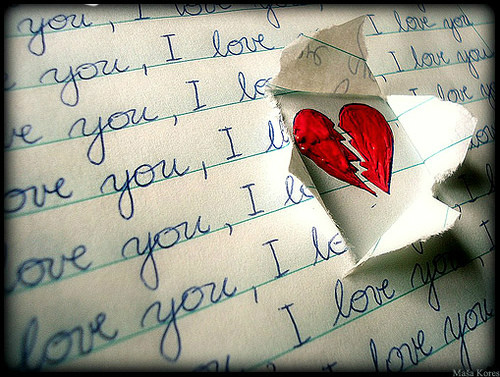 you, I love you, I
you, I love you, I love you
ve you, I lo I love you
love you, I l love you
ove you, I lo
love you, I lo
love you, I love you, I
love you, I love you
I love you
Maša Kores